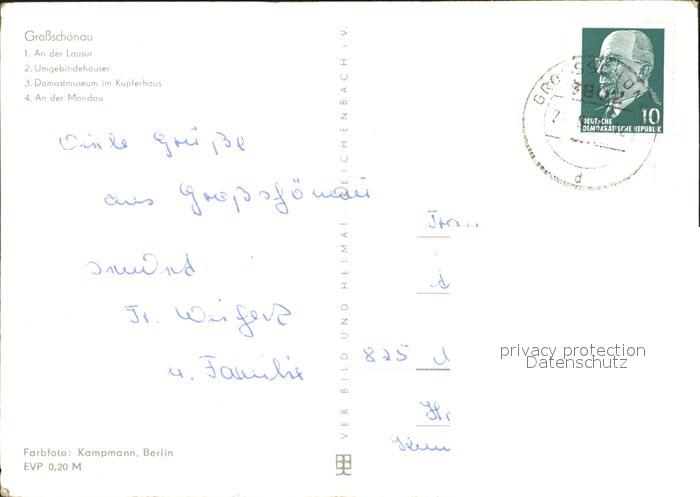 Großschönau
1. An der Lausur
2. Umgebindehäuser
3. Damastmuseum im Kupferhaus
4. An der Mandau
Viele Grüße
aus Großschönau
sendet
Fr. Weigert
u. Familie
Farbfoto: Kampmann, Berlin
EVP 0,20 M
VEB BILD UND HEIMAT REICHENBACH i.V.
10
DEUTSCHE
DEMOKRATISCHE REPUBLIK
d
825
privacy protection
Datenschutz